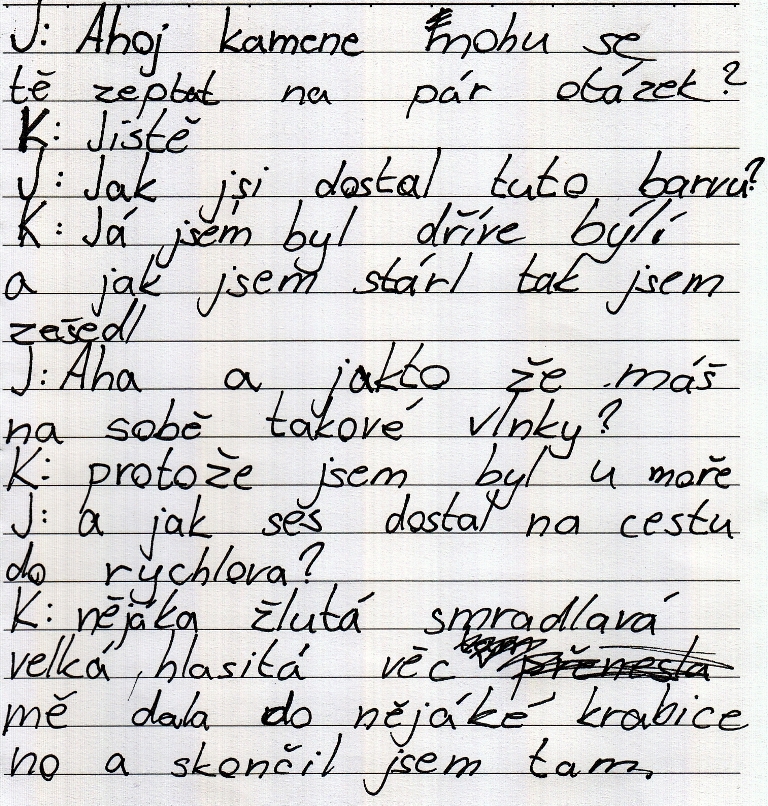 J: Ahoj kamene mohu se
tě zeptat na pár otázek?
K: Jistě
J: Jak jsi dostal tuto barvu?
K: Já jsem byl dříve býlí
a jak jsem stárl tak jsem
zešedl
J: Aha a jakto že máš
na sobě takové vlnky?
K: protože jsem byl u moře
J: a jak ses dostal na cestu
do rychlova?
K: nějáka žlutá smradlavá
velká, hlasitá věc přenesla
mě dala do nějáké krabice
no a skončil jsem tam.